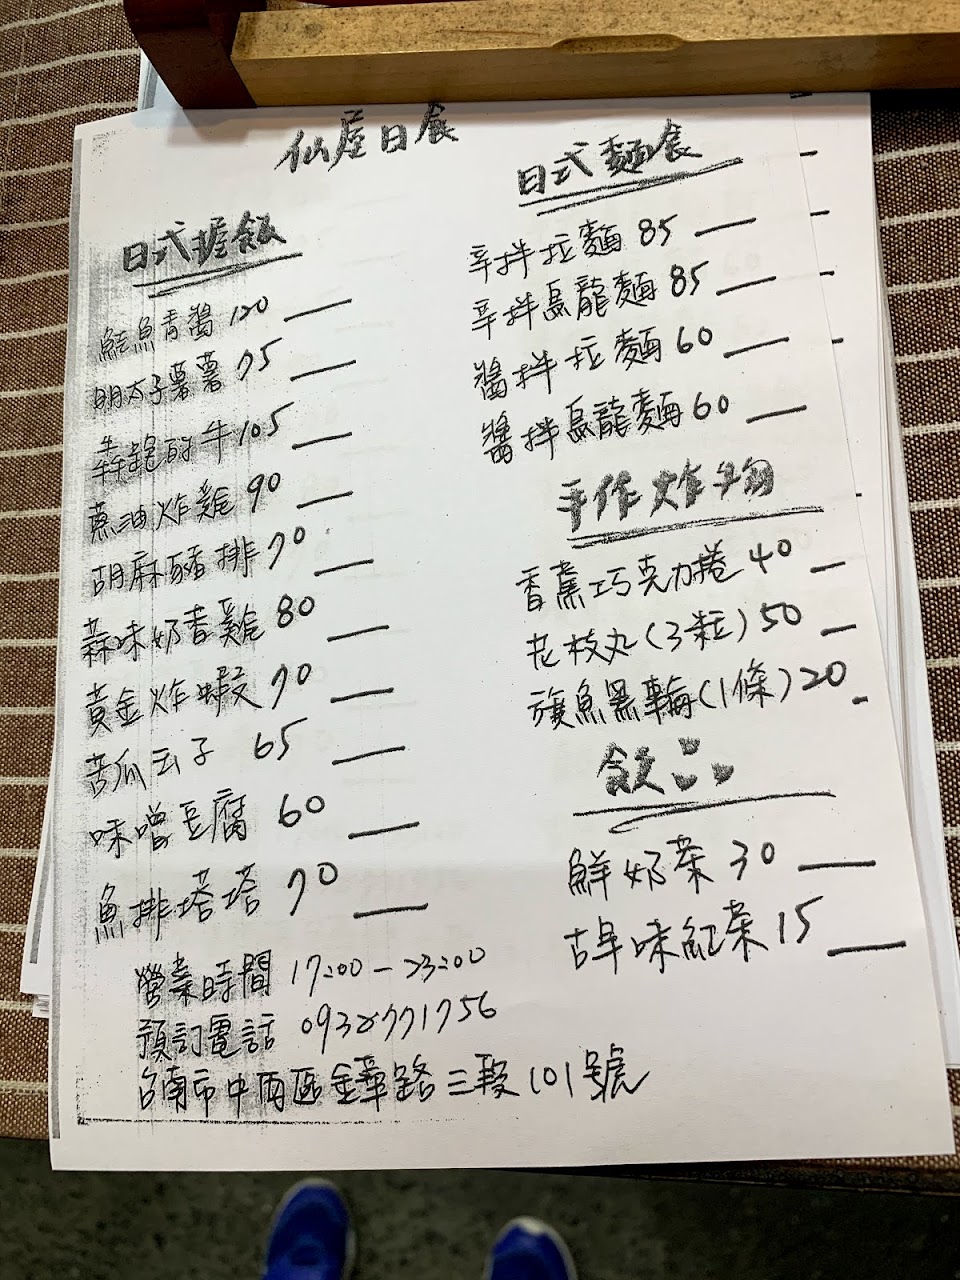 仙屋日食
日式握飯
鮭魚青醬 120
明太子薯薯 75
犇跑的牛 105
蔥油炸雞 90
胡麻豬排 70
蒜味奶香雞 80
黃金炸蝦 70
苦瓜云子 65
味噌豆腐 60
魚排塔塔 70
日式麵食
辛拌拉麵 85
辛拌烏龍麵 85
醬拌拉麵 60
醬拌烏龍麵 60
手作炸物
香蕉巧克力捲 40
花枝丸(3粒) 50
旗魚黑輪(1條) 20
飲品
鮮奶茶 30
古早味紅茶 15
營業時間 17:00-23:00
預訂電話
台南市中西區金華路三段101號